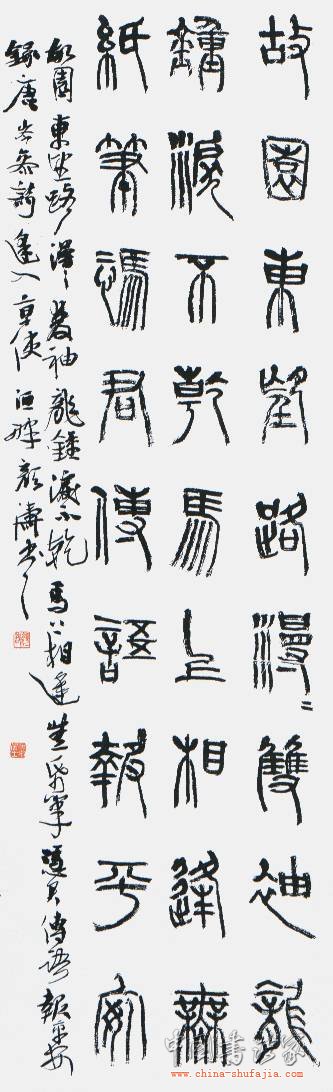 故園東望路漫〻雙袖龍
鍾淚不乾馬上相逢無
紙筆馮君傳語報平安
故園東望路漫〻雙袖龍鍾淚不乾馬上相逢無紙筆憑君傳語報平安
錄唐岑參詩逢入京使 顏濤书
中国书法家
www.china-shufajia.com